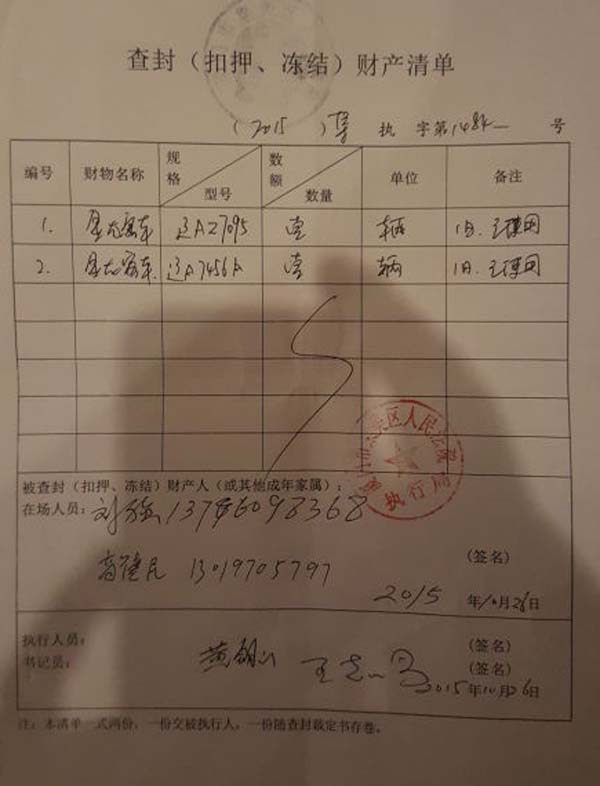 查封（扣押、冻结）财产清单
（2015） 执 字第1484 号
编号 财物名称 规格 型号 数额 数量 单位 备注
1. 金龙客车 辽A27095 壹 辆 旧.已使用
2. 金龙客车 辽A7456A 壹 辆 旧.已使用
区人民法院
执行局
被查封（扣押、冻结）财产人（或其他成年家属）：
在场人员：刘
13019705797 (签名)
2015 年10月26日
执行人员： (签名)
书记员： 王 (签名)
2015年10月26日
注：本清单一式两份，一份交被执行人，一份随查封裁定书存卷。